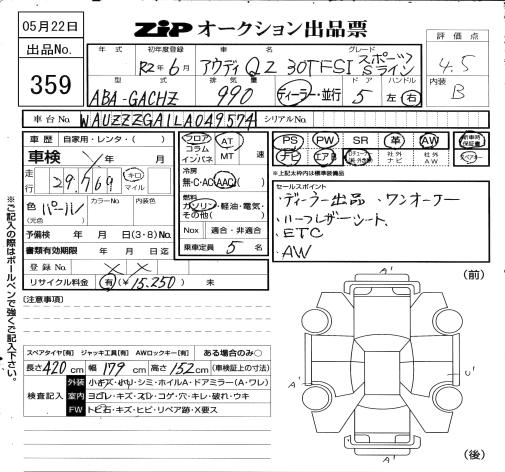 05月22日
ZIP オークション出品票
出品No.
359
評価点
4.5
内装
B
年式 初年度登録 車名 グレード
R2年6月 アウディ Q2 30TFSI スポーツ Sライン
型式 排気量 ドア ハンドル
ABA-GACHZ 990 ディーラー・並行 5 左 右
車台No. WAUZZZGA1LA049574 シリアルNo.
車歴 自家用・レンタ・( )
車検 年 月
走行 29,769 キロ マイル
色 パール カラーNo. 内装色
(元色)
予備検 年 月 日(3・8)No.
書類有効期限 年 月 日迄
登録No.
リサイクル料金 有(¥15,250) 未
フロア コラム インパネ AT MT 速
冷房
無・C・AC・AAC
燃料
ガソリン・軽油・電気・その他( )
Nox 適合・非適合
乗車定員 5 名
PS PW SR 革 AW 新車時保証書
ナビ エアB 社外ナビ 社外AW スペアキー
※上記太枠内は標準装備品
セールスポイント
・ディーラー出品 ワンオーナー
・ハーフレザーシート、
・ETC
・AW
(注意事項)
スペアタイヤ[有] ジャッキ工具[有] AWロックキー[有] ある場合のみ○
長さ420cm 幅179cm 高さ152cm (車検証上の寸法)
検査記入
外装 小キズ・小ヘコ・シミ・ホイルA・ドアミラー(A・ワレ)
室内 ヨゴレ・キズ・スレ・コゲ・穴・キレ・破れ・ウキ
FW トビ石・キズ・ヒビ・リペア跡・X要ス
※ご記入の際はボールペンで強くご記入下さい。
(前)
A'
A'
U'
A'
(後)